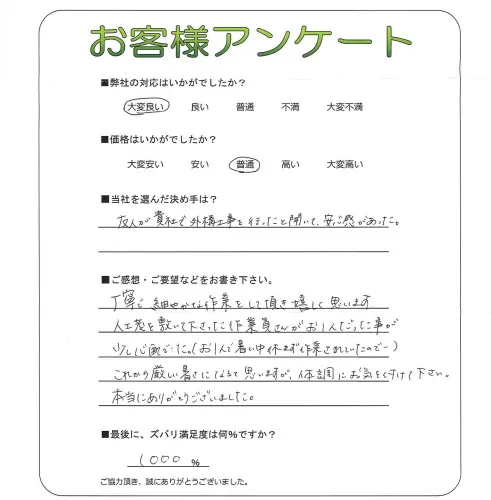 お客様アンケート
■弊社の対応はいかがでしたか?
大変良い 良い 普通 不満 大変不満
■価格はいかがでしたか?
大変安い 安い 普通 高い 大変高い
■当社を選んだ決め手は?
友人が貴社で外構工事を行ったと聞いて、安心感があった。
■ご感想・ご要望などをお書き下さい。
丁寧で細やかな作業をして頂き嬉しく思います
人工芝を敷いて下さった作業員さんがお1人だった事が
少し心配でした。(お1人で暑い中休まず作業されていたので…)
これから厳しい暑さになると思いますが、体調にお気を付けて下さい。
本当にありがとうございました。
■最後に、ズバリ満足度は何%ですか?
1000 %
ご協力頂き、誠にありがとうございました。